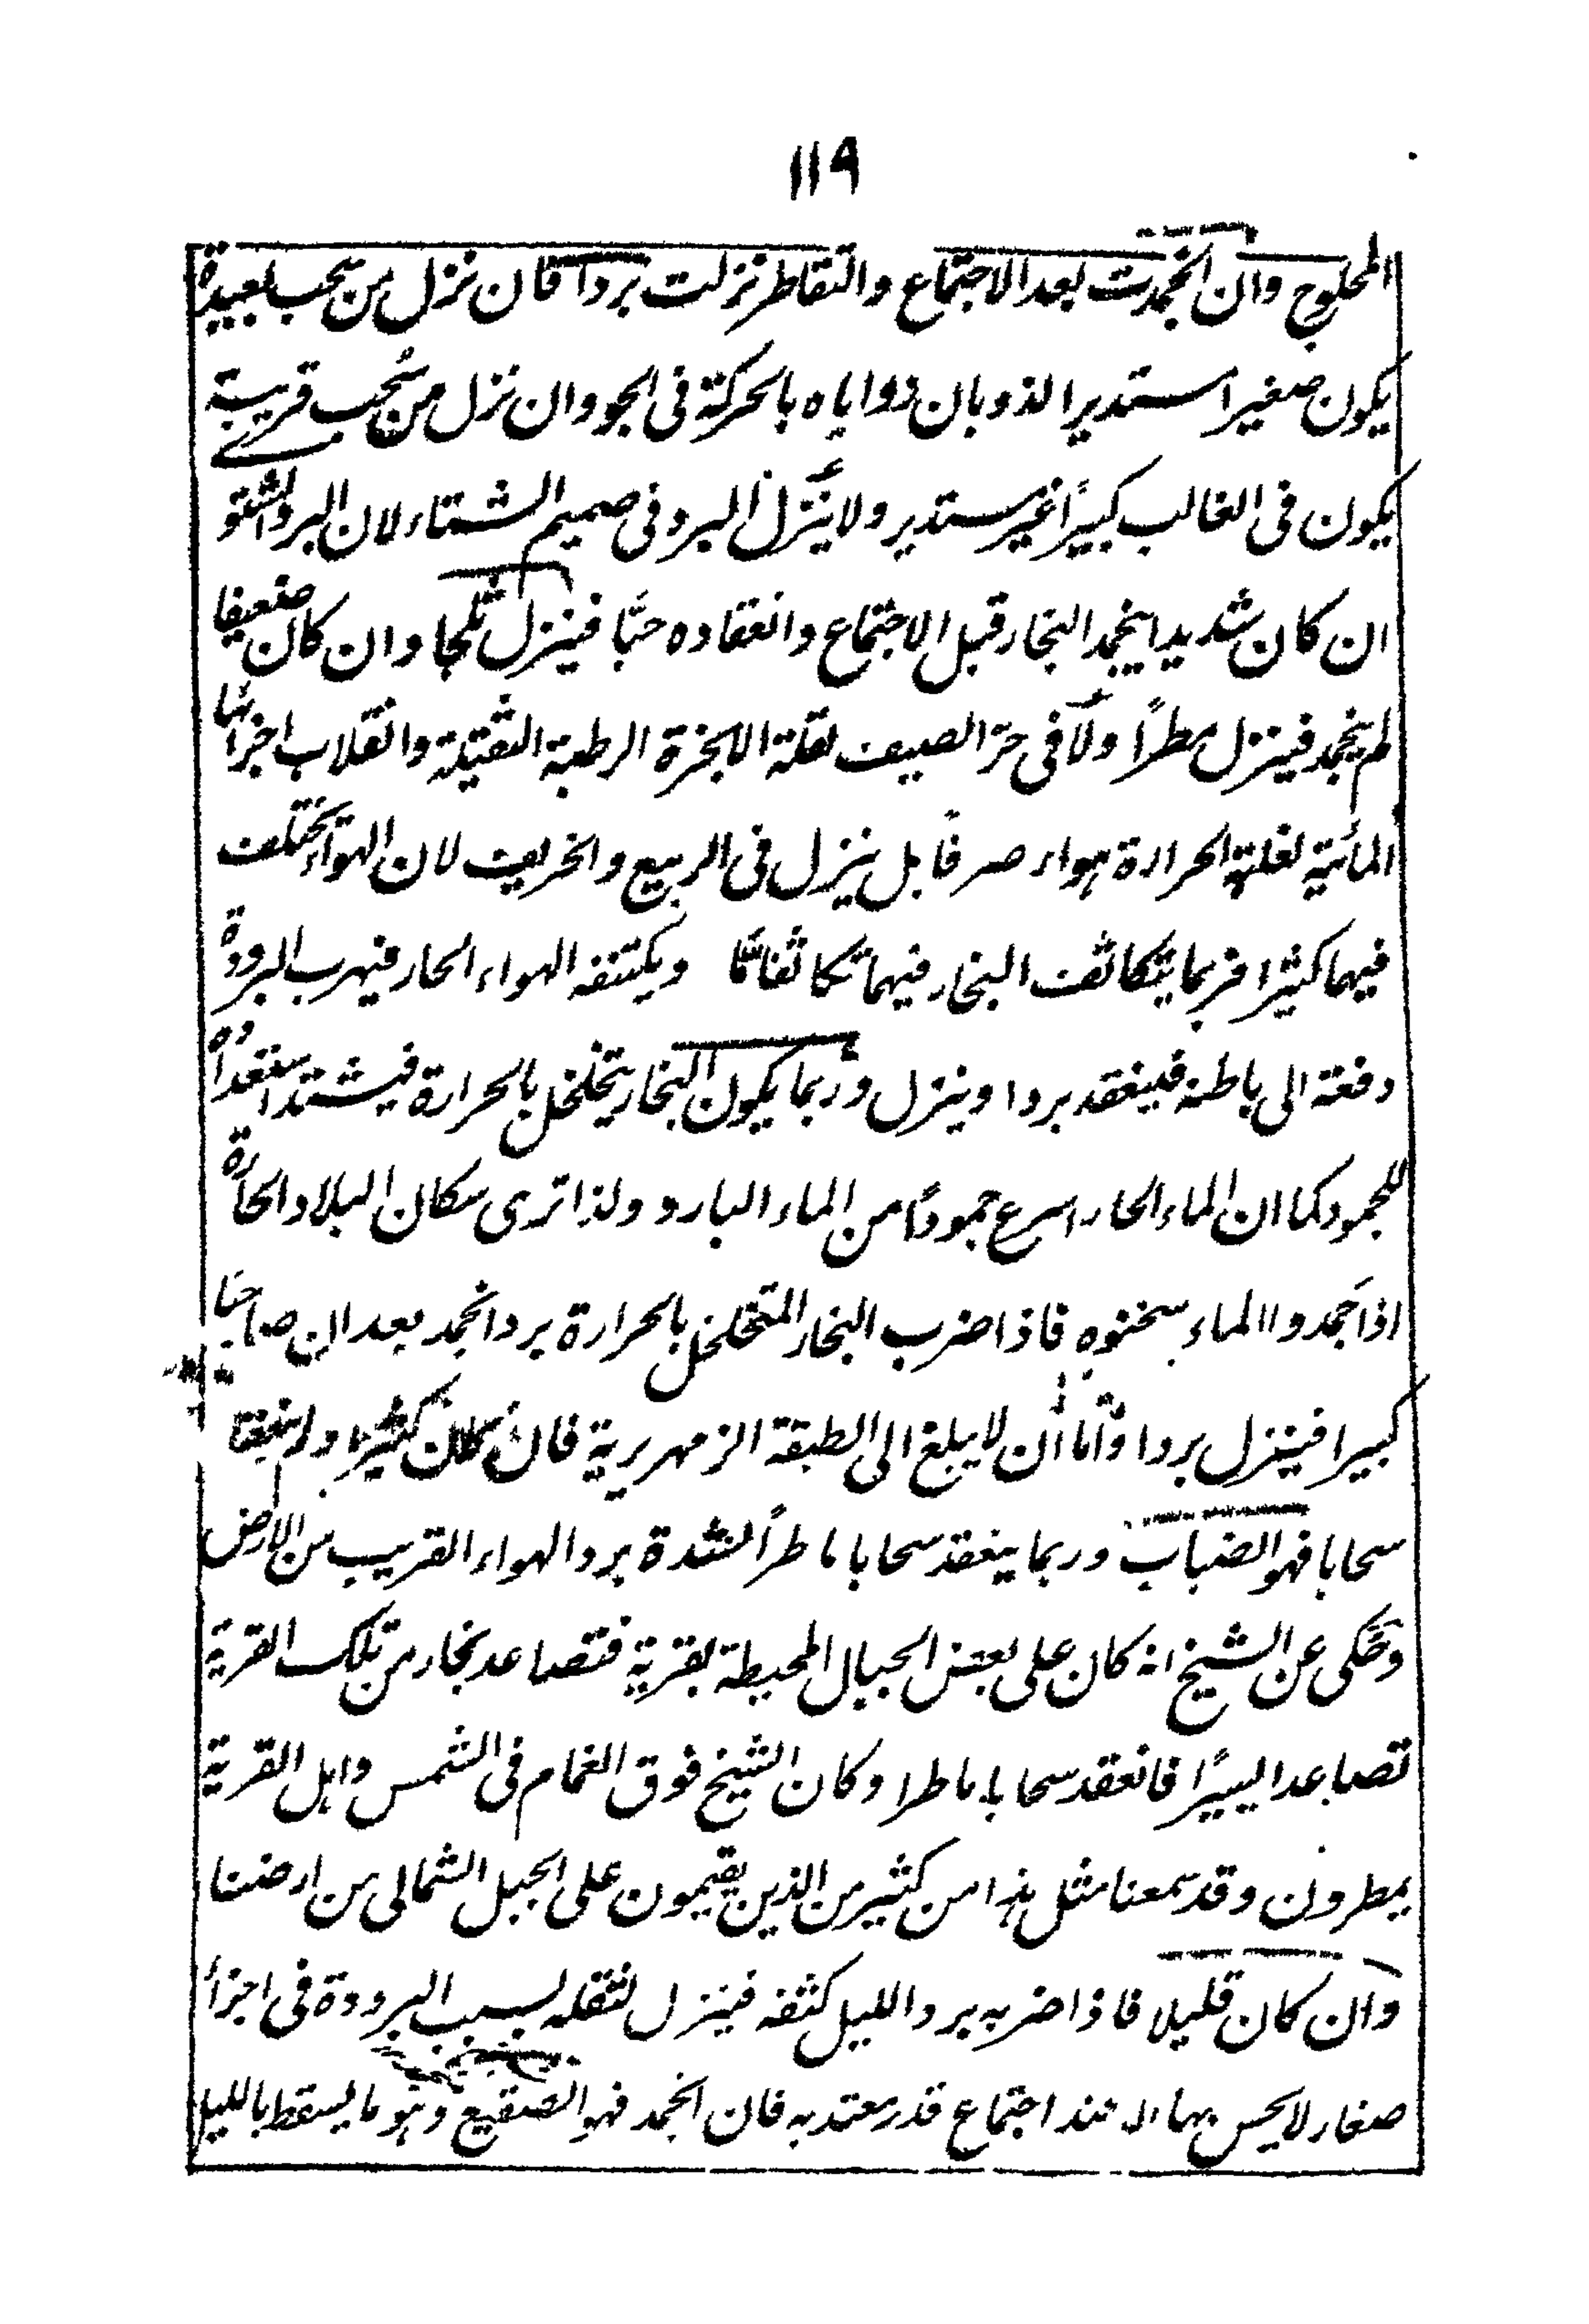 ۱۱۹
المحلوج وان انجمدت بعد الاجتماع والتقاطر نزلت بردا فان نزل من سحب بعيدة
يكون صغيرا مستديرا لذوبان زواياه بالحركة فى الجو وان نزل من سُحب قريبة
يكون فى الغالب كبيرًا غير مستدير ولا ينزل البرد فى صميم الشتاء لان البرد الشتو
ان كان شديدا ينجمد البخار قبل الاجتماع وانعقاده حبًّا فينزل ثلجا وان كان ضعيفا
لم ينجمد فينزل مطرًا ولا فى حرّ الصيف لقلة الابخرة الرطبة الثقيلة وانقلاب اجزائها
المائية لغلبة الحرارة هواء صرفًا بل ينزل فى الربيع والخريف لان الهواء يختلف
فيهما كثيرا فربما يتكاثف البخار فيهما تكاثفا مّا ويكتنفه الهواء الحار فيهرب البرودة
دفعة الى باطنه فينعقد بردا وينزل وربما يكون البخار يتخلخل بالحرارة فيشتد استعداده
للجمود كما ان الماء الحار اسرع جمودًا من الماء البارد ولذا ترى سكان البلاد الحارة
اذا جَمدوا الماء سخنوه فاذا ضرب البخار المتخلخل بالحرارة برد انجمد بعد ان صار حبًا
كبيرا فينزل بردا وامّا ان لا يبلغ الى الطبقة الزمهريرية فان كان كثيرا وانعقد
سحابا فهو الضباب وربما ينعقد سحابا ماطرًا لشدة برد الهواء القريب من الارض
وحُكى عن الشيخ انه كان على بعض الجبال المحيطة بقرية فتصاعد بخار من تلك القرية
تصاعدا يسيرًا فانعقد سحابا ماطرا وكان الشيخ فوق الغمام فى الشمس واهل القرية
يمطرون وقد سمعنا مثل هذا من كثير من الذين يقيمون على الجبل الشمالى من ارضنا
وان كان قليلا فاذا ضربه برد الليل كثفه فينزل لثقله بسبب البرودة فى اجزأ
صغار لا يحس بها الا عند اجتماع قدر معتد به فان انجمد فهو الصقيع وهو ما يسقط بالليل